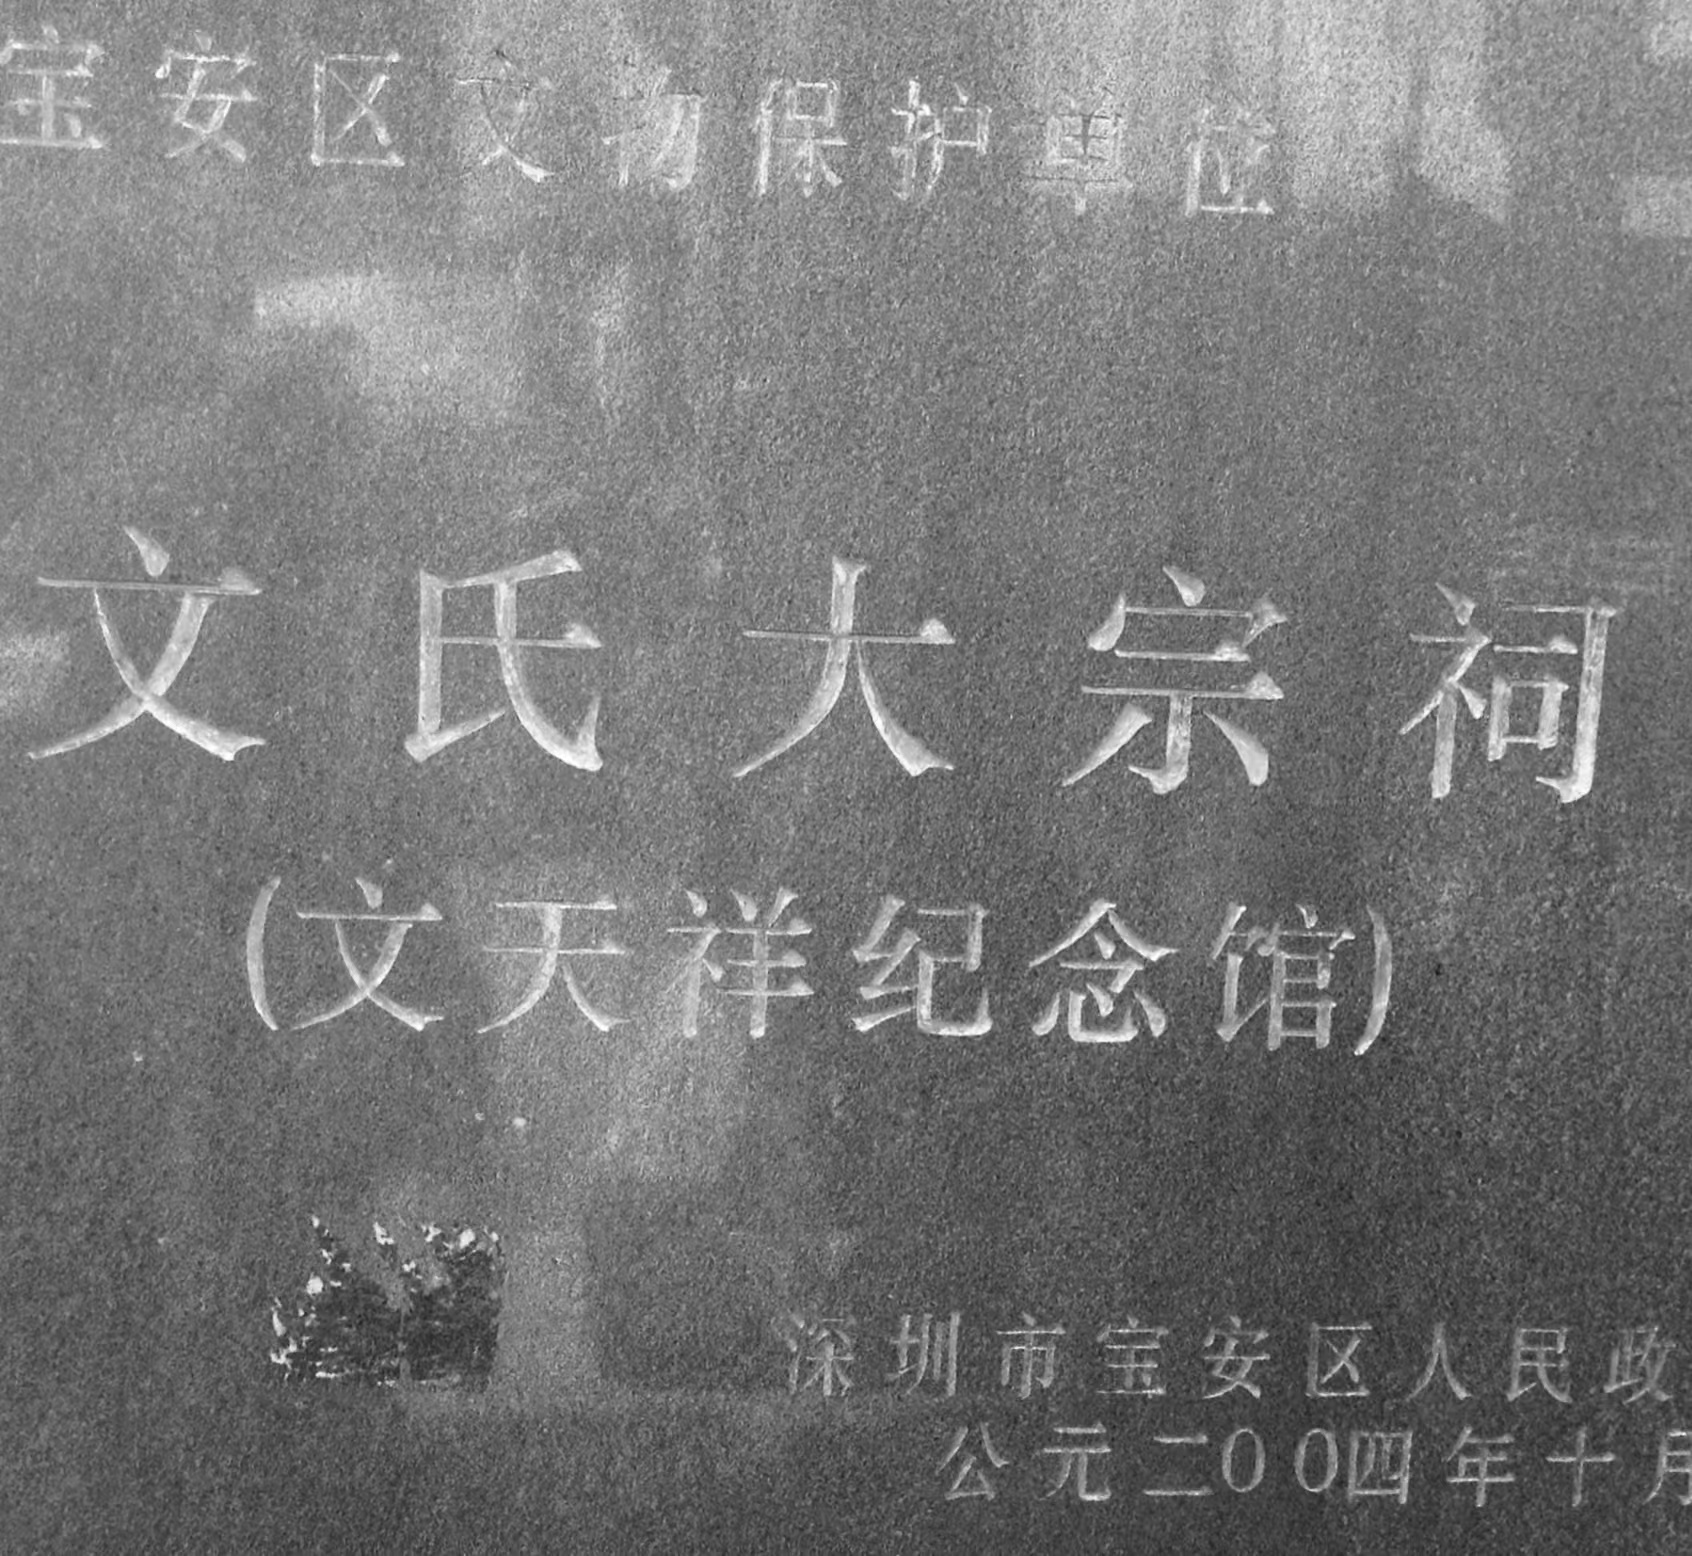 宝安区文物保护单位
文氏大宗祠
(文天祥纪念馆)
深圳市宝安区人民政
公元二00四年十月